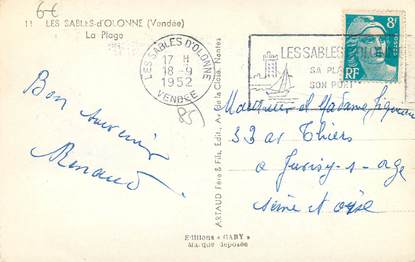 6-6
11 LES SABLES-d'OLONNE (Vendée)
La Plage
LES SABLES D'OLONNE
17 H
18-9
1952
VENDÉE
LES SABLES D'OLONNE
SA PLAGE
SON PORT
8F
RF
POSTES
85
Bon souvenir
Renaud
ARTAUD Père & Fils, Edit., Av. de la Close, Nantes
Monsieur et Madame
33 av Thiers
à Juvisy-s-Orge
Seine et Oise
Editions "GABY"
Marque déposée